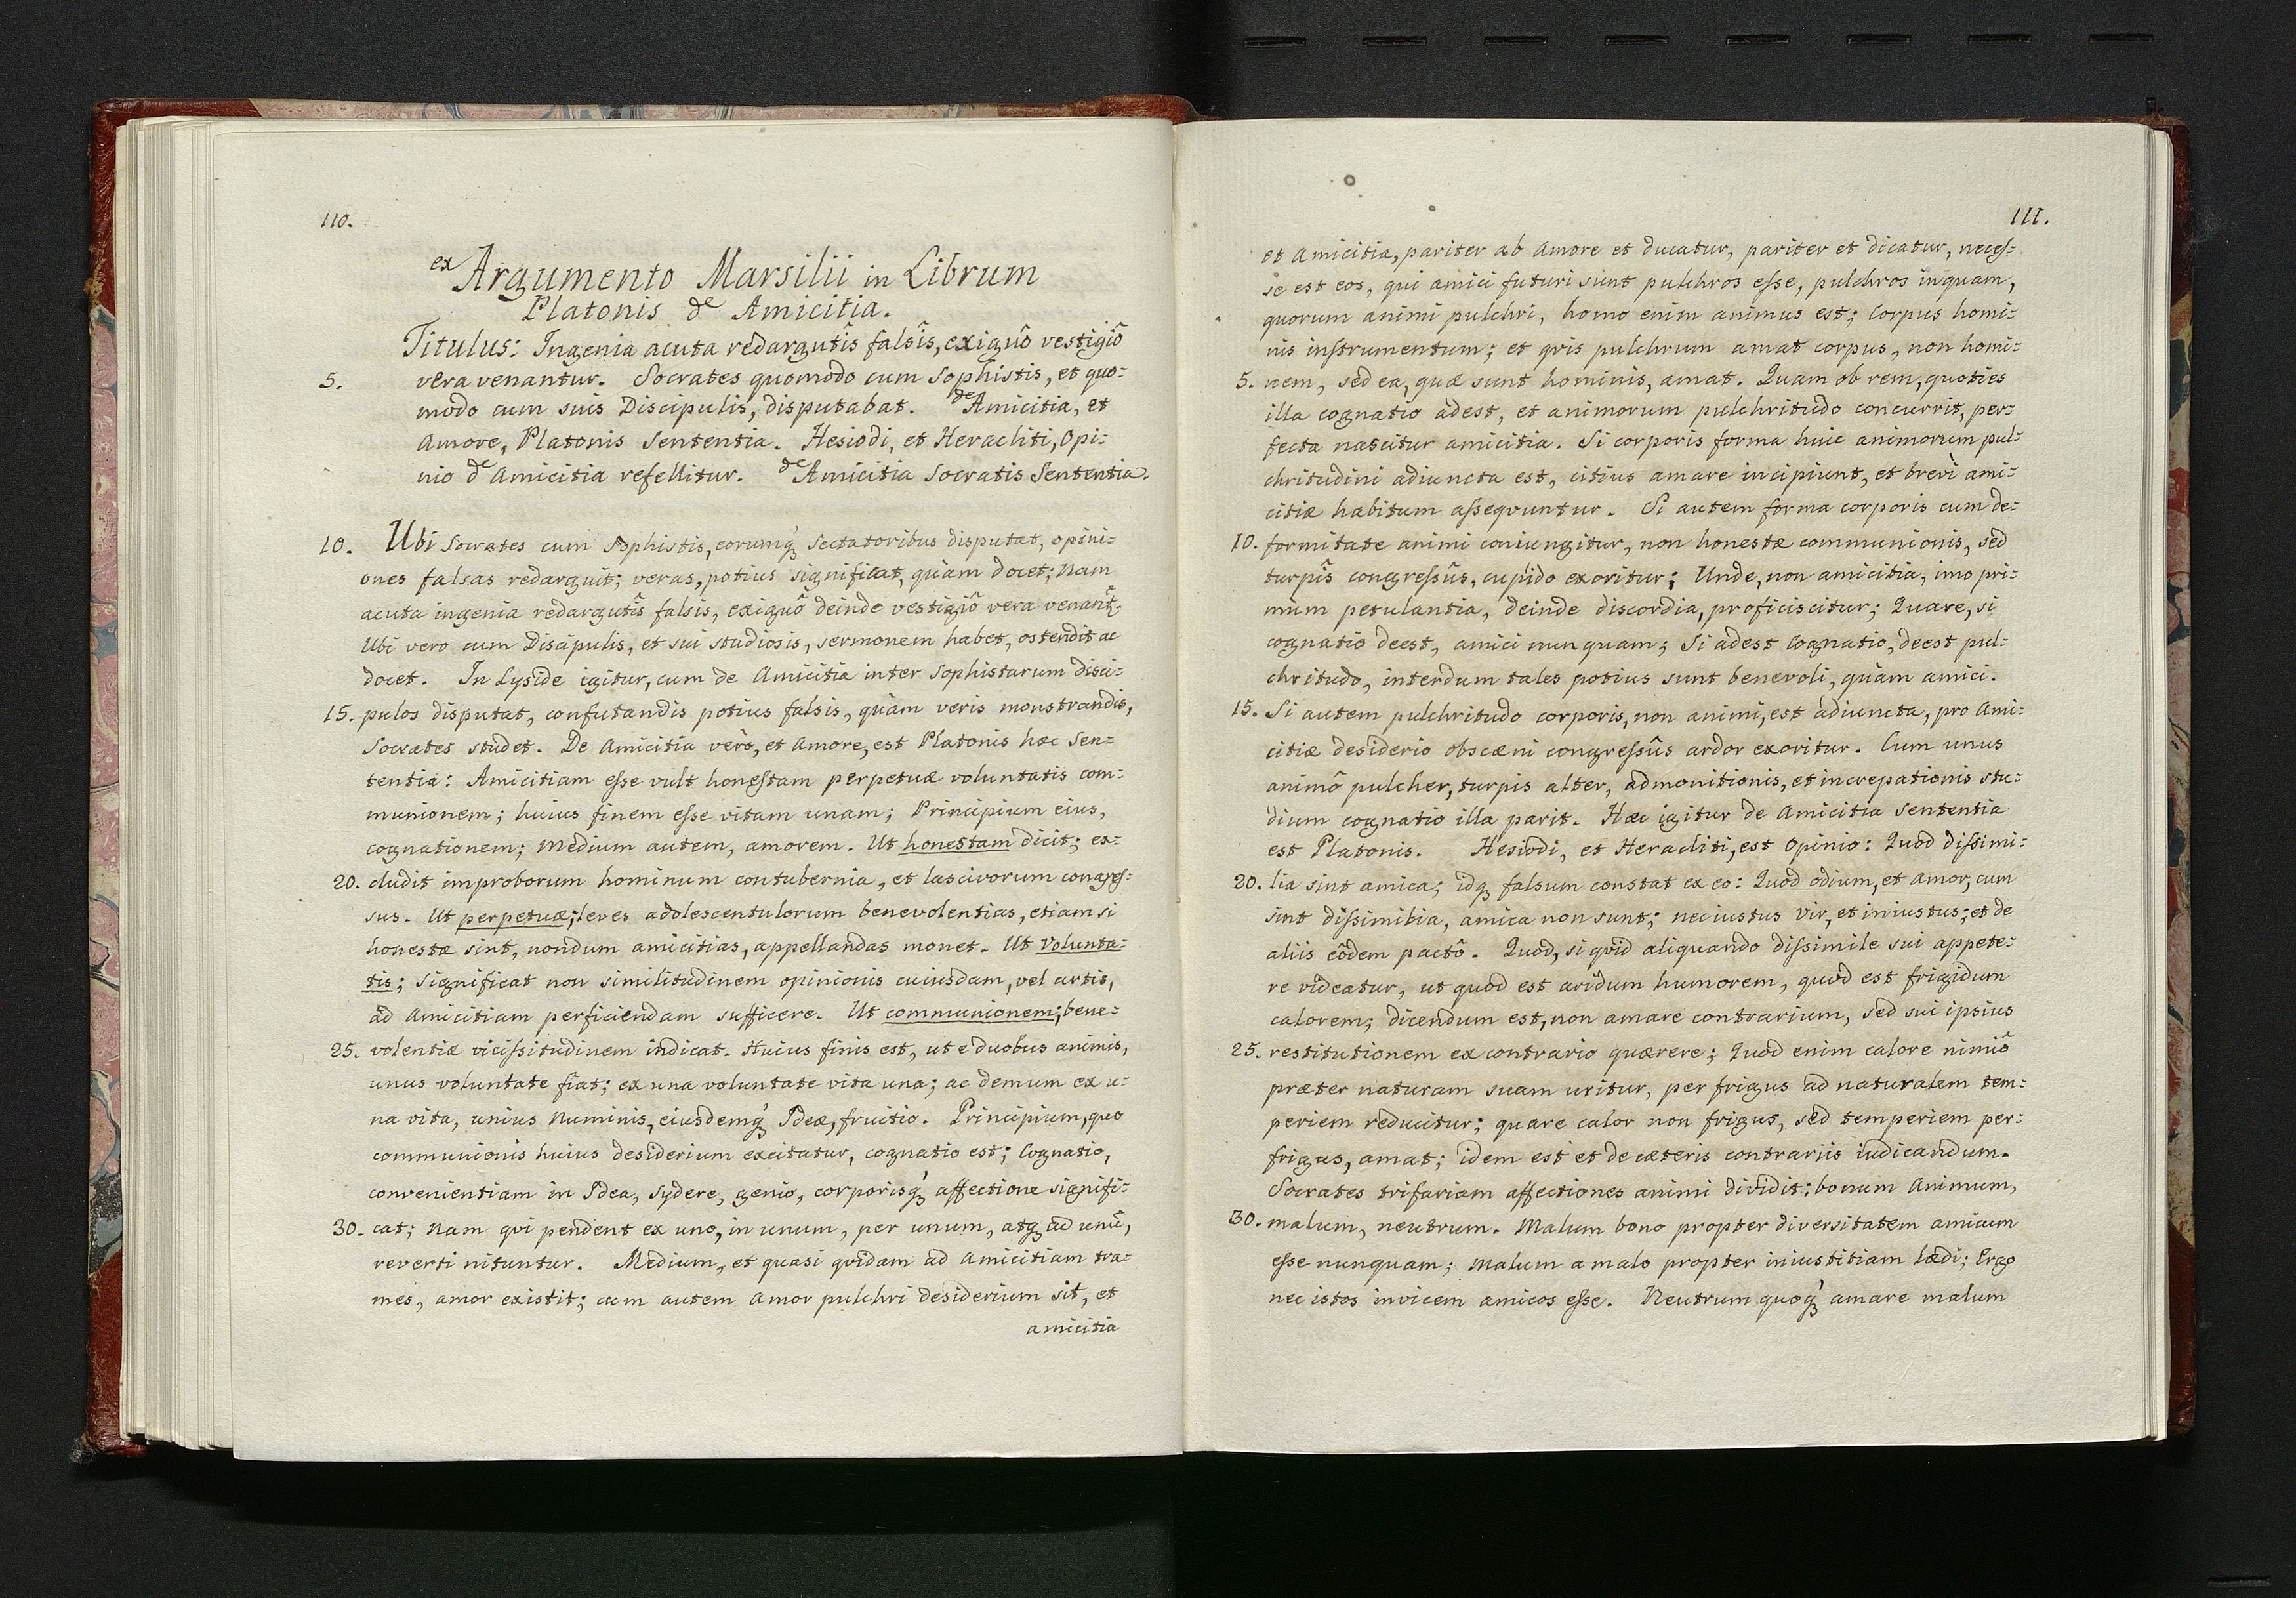 110.
ex Argumento Marsilii in Librum
Platonis de Amicitia.
Titulus: Ingenia acuta redargutîs falsîs, exiguô vestigiô
5. vera venantur. Socrates quomodo cum Sophistis, et quo=
modo cum suis Discipulis, disputabat. de Amicitia, et
Amore, Platonis Sententia. Hesiodi, et Heracliti, Opi=
nio de Amicitia refellitur. de Amicitia Socratis Sententia.
10. Ubi Socrates cum Sophistis, eorumq́ꝫ Sectatoribus disputat, opini=
ones falsas redarguit; veras, potius significat, quàm docet; Nam
acuta ingenia redargutîs falsis, exiguô deinde vestigiô vera venant̃.
Ubi vero cum Discipulis, et sui studiosis, sermonem habet, ostendit ac
docet. In Lyside igitur, cum de Amicitia inter Sophistarum disci=
15. pulos disputat, confutandis potius falsis, quàm veris monstrandis,
Socrates studet. De Amicitia verò, et Amore, est Platonis hæc Sen=
tentia: Amicitiam eſse vult honeſtam perpetuæ voluntatis com=
munionem; huius finem eſse vitam unam; Principium eius,
cognationem; Medium autem, amorem. Ut honestam dicit; ex=
20. cludit improborum hominum contubernia, et lascivorum congreſ=
sus. Ut perpetuæ; leves adolescentulorum benevolentias, etiam si
honestæ sint, nondum amicitias, appellandas monet. Ut volunta=
tis; significat non similitudinem opinionis cuiusdam, vel artis,
ad Amicitiam perficiendam sufficere. Ut communionem; bene=
25. volentiæ viciſsitudinem indicat. Huius finis est, ut e duobus animis,
unus voluntate fiat; ex una voluntate vita una; ac demum ex u=
na vita, unius Numinis, eiusdemq́ꝫ Ideæ, fruitio. Principium, quo
communionis huius desiderium excitatur, cognatio est; Cognatio,
convenientiam in Idea, Sydere, genio, corporisq́ꝫ affectione signifi=
30. cat; Nam qvi pendent ex uno, in unum, per unum, atqꝫ ad unū,
reverti nituntur. Medium, et quasi qvidam ad Amicitiam tra=
mes, amor existit; cum autem Amor pulchri desiderium sit, et
amicitia
111.
et Amicitia, pariter ab Amore et ducatur, pariter et dicatur, neceſ=
se est eos, qui amici futuri sunt pulchros eſse, pulchros inquam,
quorum animi pulchri, homo enim animus est; Corpus homi=
nis inſtrumentum; et qvis pulchrum amat corpus, non homi=
5. nem, sed ea, quæ sunt hominis, amat. Quam ob rem, quoties
illa cognatio adest, et animorum pulchritudo concurrit, per=
fecta nascitur amicitia. Si corporis forma huic animorum pul=
chritudini adiuncta est, citius amare incipiunt, et brevì ami=
citiæ habitum aſseqvuntur. Si autem forma corporis cum de=
10. formitate animi coniungitur, non honestæ communionis, sed
turpîs congreſsûs, cupido exoritur; Unde, non amicitia, imo pri=
mum petulantia, deinde discordia, proficiscitur; Quare, si
cognatio deest, amici nunquam; Si adest Cognatio, deest pul=
chritudo, interdum tales potius sunt benevoli, quàm amici.
15. Si autem pulchritudo corporis, non animi, est adiuncta, pro Ami=
citiæ desiderio obscæni congreſsûs ardor exoritur. Cum unus
animô pulcher, turpis alter, admonitionis, et increpationis stu=
dium cognatio illa parit. Hæc igitur de Amicitia Sententia
est Platonis. Hesiodi, et Heracliti, est Opinio: Quod diſsimi=
20. lia sint amica; idqꝫ falsum constat ex eo: Quod odium, et Amor, cum
sint diſsimilia, amica non sunt; nec iustus vir, et iniustus; et de
aliis eôdem pactô. Quod, si qvid aliquando diſsimile sui appete=
re videatur, ut quod est aridum humorem, quod est frigidum
calorem; dicendum est, non amare contrarium, sed sui ipsius
25. restitutionem ex contrario quærere; Quod enim calore nimiô
præter naturam suam uritur, per frigus ad naturalem tem=
periem reducitur; quare calor non frigus, sed temperiem per=
frigus, amat; idem est et de cæteris contrariis iudicandum.
Socrates trifariam affectiones animi dividit: bonum Animum,
30. malum, neutrum. Malum bono propter diversitatem amicum
eſse nunquam; Malum a malo propter iniustitiam lædi; Ergo
nec istos invicem amicos eſse. Neutrum quoq́ꝫ amare malum